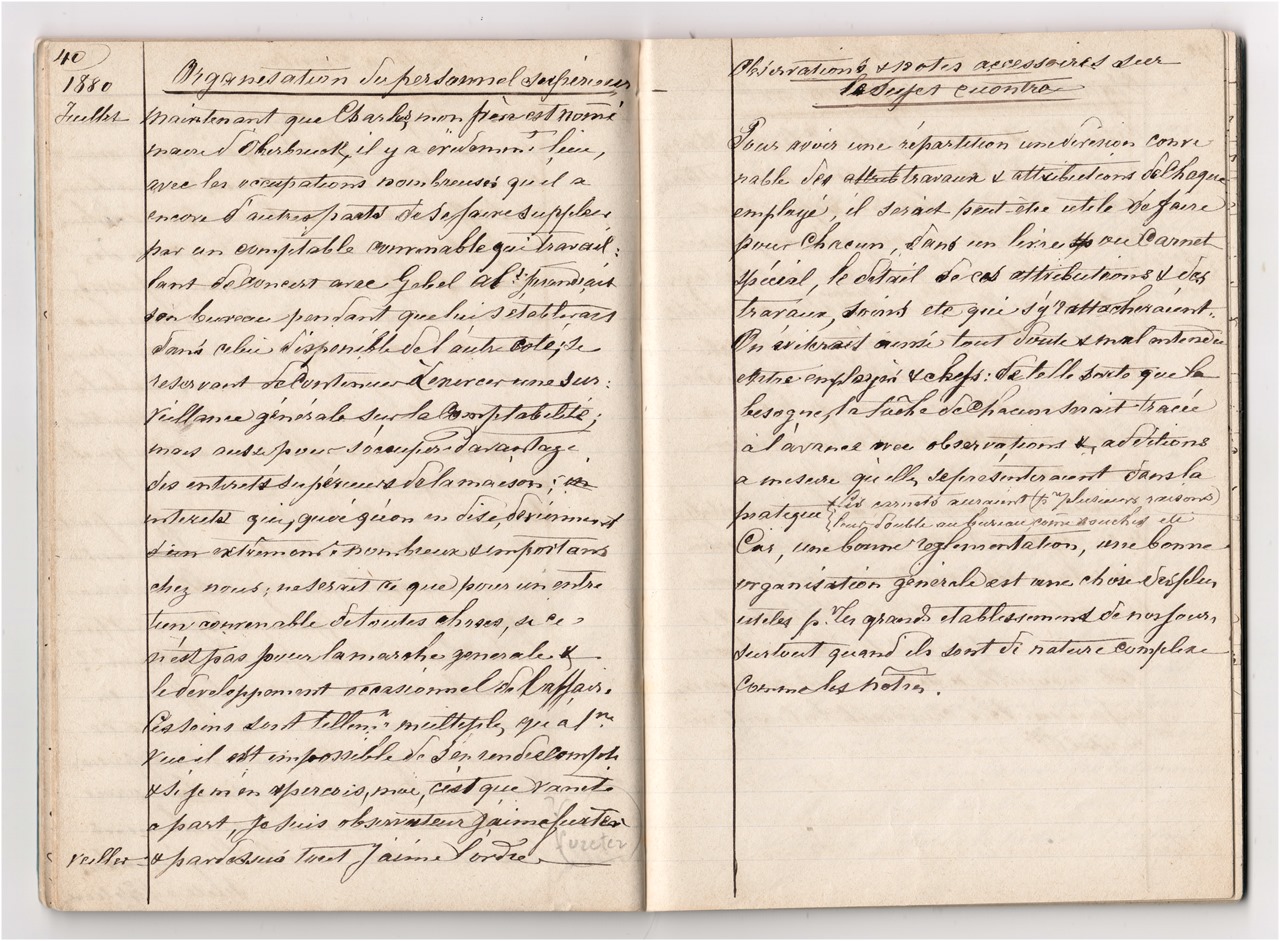 40
1880
Organisation du personnel supérieur
Juillet
maintenant que Charles, mon frère est nommé
maire d'Oberbruck, il y a évidemmt lieu,
avec les occupations nombreuses qu'il a
encore d'autres parts de se faire suppléer
par un comptable convenable qui travail:
lant de concert avec Gebel ali: prendrait
son bureau pendant que lui s'établirait
dans celui disponible de l'autre côté, se
reservant de continuer d'exercer une sur:
veillance générale sur la Comptabilité;
mais aussi pour s'occuper d'avantage
des interets supérieurs de la maison;
interets qui, quoi qu'on en dise, deviennent
extrememt nombreux & importans
chez nous; ne serait ce que pour un entre
tien convenable de toutes choses, si ce
n'est pas pour la marche generale &
le developpement occasionnel de l'affaire.
Ces soins sont tellemt multiples, qu'à 1re
vue il est impossible de s'en rendre compte
& si je m'en aperçois, moi, c'est que vanité
a part, je suis observateur j'aime fureter
(fureter)
veiller & par dessus tout j'aime l'ordre.
Observations & notes accessoires sur
le sujet encontre
Pour avoir une répartition une division conve
nable des attrib travaux & attributions de chaque
employé, il serait peut-être utile de faire
pour chacun, dans un livre ou Carnet
spécial, le détail de ces attributions & des
travaux, soins etc qui s'y rattacheraient.
On éviterait ainsi tout doute & mal entendu
entre employés & chefs: de telle sorte que la
besogne, la tâche de chacun serait tracée
à l'avance avec observations & additions
a mesure qu'elles se presenteraient dans la
pratique (Ces carnets auraient (pr plusieurs raisons)
leur double au bureau come souches etc
Car, une bonne reglementation, une bonne
organisation générale est une chose des plus
utiles pr les grands etablissements de nos jours,
surtout quand ils sont de nature complexe
comme les nôtres.